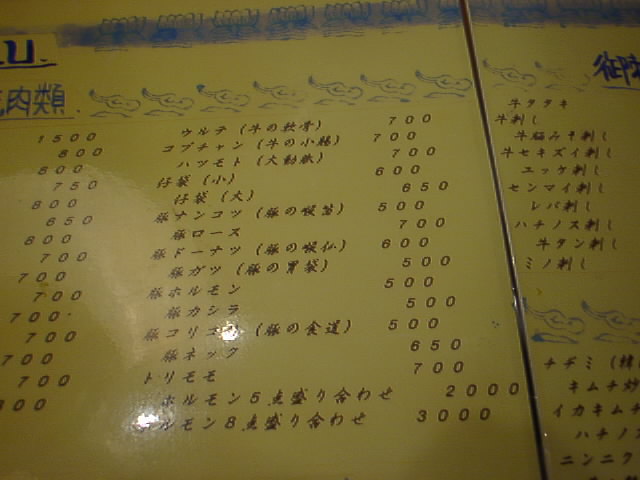 U.
肉類
1500
800
800
750
800
650
800
700
700
700
700
700
700
700
ウルテ (牛の軟骨) 700
コプチャン (牛の小腸) 700
ハツモト (大動脈) 700
仔袋 (小) 600
仔袋 (大) 650
豚ナンコツ (豚の喉笛) 500
豚ロース 700
豚ドーナツ (豚の喉仏) 600
豚ガツ (豚の胃袋) 500
豚ホルモン 500
豚カシラ 500
豚コリコリ (豚の食道) 500
豚ネック 650
トリモモ 700
ホルモン5点盛り合わせ 2000
ホルモン8点盛り合わせ 3000
御
牛タタキ
牛刺し
牛脳みそ刺し
牛セキズイ刺し
ユッケ刺し
センマイ刺し
レバ刺し
ハチノス刺し
牛タン刺し
ミノ刺し
チヂミ (韓
キムチ炒
イカキムチ
ハチノス
ニンニク